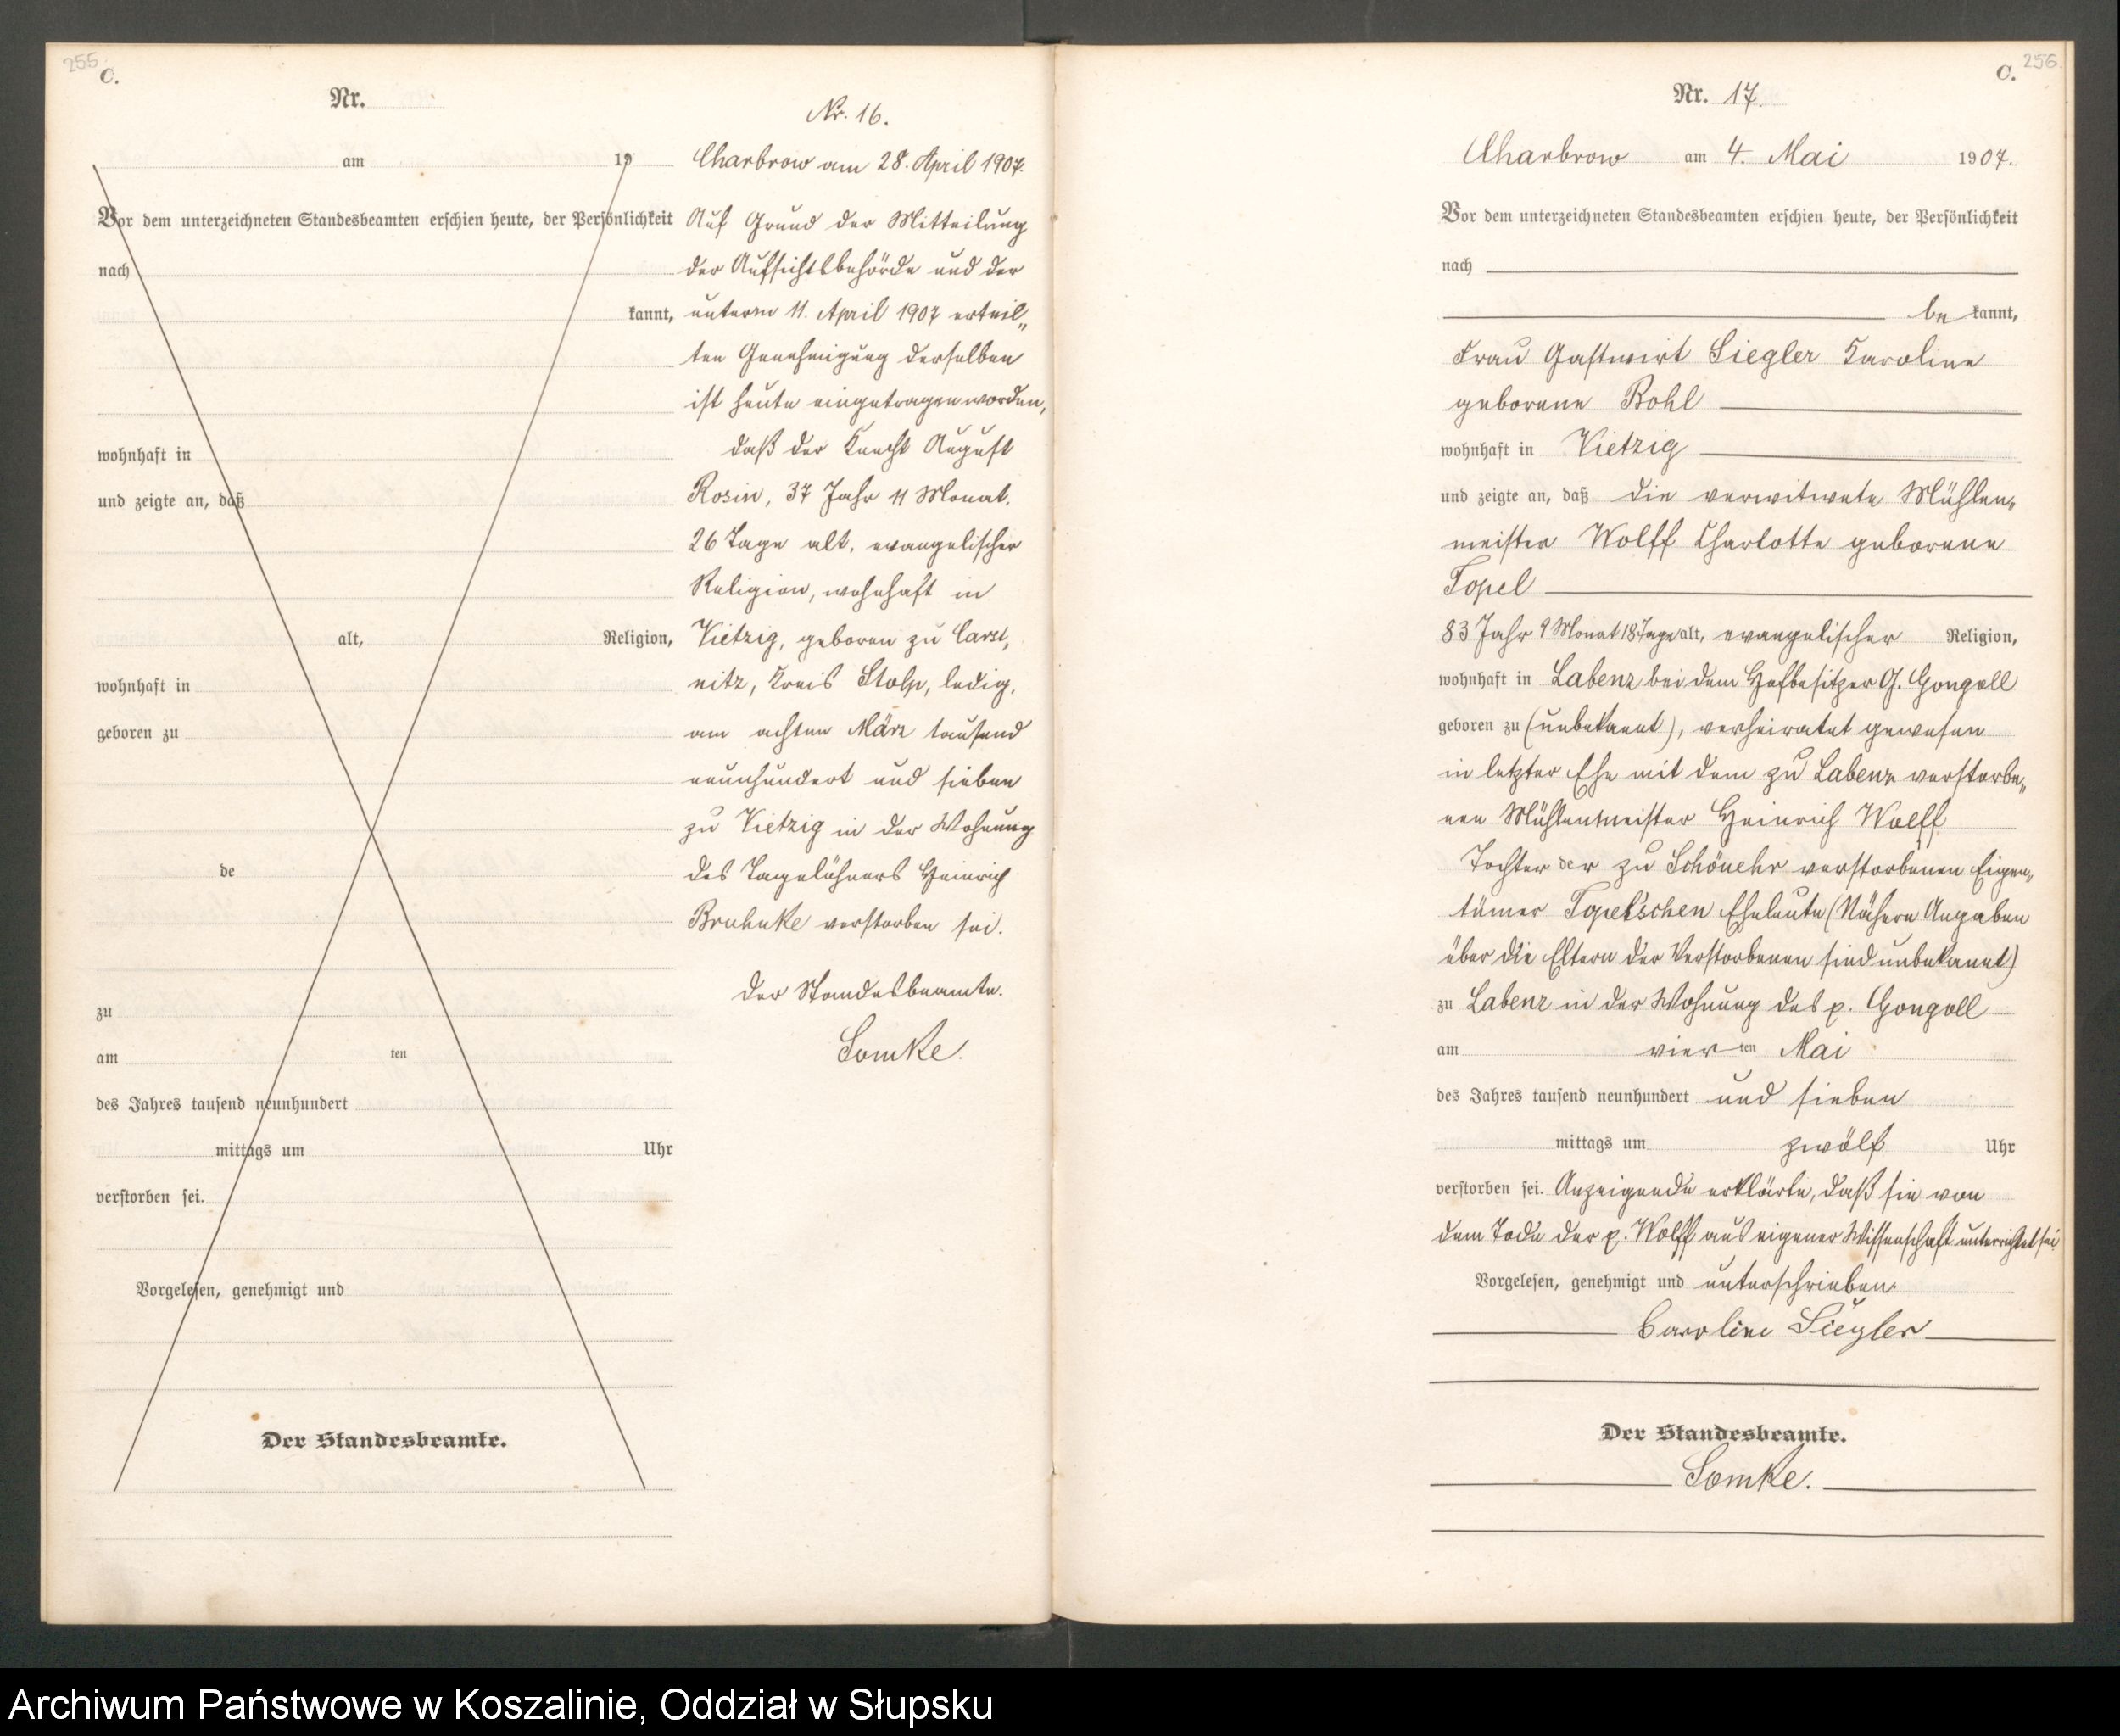 255
C.
Nr.
am 19
Vor dem unterzeichneten Standesbeamten erschien heute, der Persönlichkeit
nach
kannt,
wohnhaft in
und zeigte an, daß
alt, Religion,
wohnhaft in
geboren zu
de
zu
am ten
des Jahres tausend neunhundert
mittags um Uhr
verstorben sei.
Vorgelesen, genehmigt und
Der Standesbeamte.
Nr. 16.
Charbrow am 28. April 1907.
Auf Grund der Mitteilung
der Aufsichtsbehörde und der
unterm 11. April 1907 erteil„
ten Genehmigung derselben
ist heute eingetragen worden,
daß der Knecht August
Rosin, 37 Jahr 11 Monat,
26 Tage alt, evangelischer
Religion, wohnhaft in
Vietzig, geboren zu Carst,
nitz, Kreis Stolp, ledig,
am achten März tausend
neunhundert und sieben
zu Vietzig in der Wohnung
des Tagelöhners Heinrich
Bruhnke verstorben sei.
Der Standesbeamte.
Somke.
256.
C.
Nr. 17.
Charbrow am 4. Mai 1907.
Vor dem unterzeichneten Standesbeamten erschien heute, der Persönlichkeit
nach
be kannt,
Frau Gastwirt Siegler Karoline
geborene Bohl
wohnhaft in Vietzig
und zeigte an, daß die verwitwete Mühlen„
meister Wolff Charlotte geborene
Topel
83 Jahr 9 Monat 18 Tage alt, evangelischer Religion,
wohnhaft in Labenz bei dem Hofbesitzer G. Gongoll
geboren zu (unbekannt), verheiratet gewesen
in letzter Ehe mit dem zu Labenz verstorbe„
nen Mühlenmeister Heinrich Wolff
Tochter der zu Schönehr verstorbenen Eigen„
tümer Topel'schen Eheleute (Nähere Angaben
über die Eltern der Verstorbenen sind unbekannt)
zu Labenz in der Wohnung des p. Gongoll
am vier ten Mai
des Jahres tausend neunhundert und sieben
mittags um zwölf Uhr
verstorben sei. Anzeigende erklärte, daß sie von
dem Tode der p. Wolff aus eigener Wissenschaft unterrichtet sei.
Vorgelesen, genehmigt und unterschrieben.
Caroline Siegler
Der Standesbeamte.
Somke.
Archiwum Państwowe w Koszalinie, Oddział w Słupsku